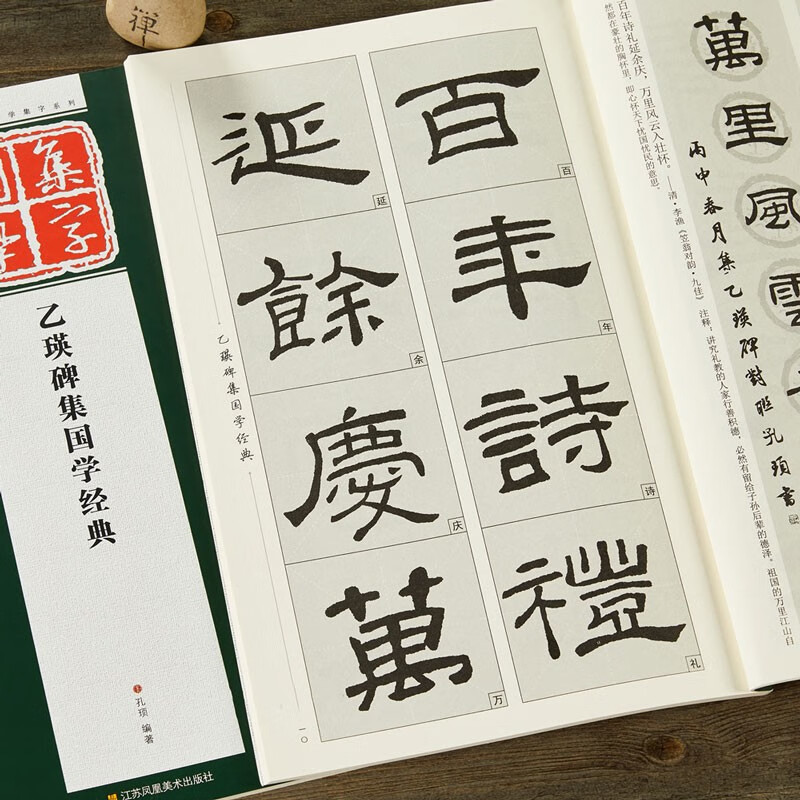 禅
学集字系列
集
字
乙瑛碑集国学经典
孔顼 编著
江苏凤凰美术出版社
百
百
年
年
詩
诗
禮
礼
延
延
餘
余
慶
庆
萬
万
乙瑛碑集国学经典
一〇
萬里風雲
丙申春月集乙瑛碑對联孔頊書
百年诗礼延余庆，万里风云入壮怀。
——清·李渔《笠翁对韵·九佳》
注释：讲究礼教的人家行善积德，必然有留给子孙后辈的德泽。祖国的万里江山自
然都在豪壮的胸怀里，即心怀天下忧国忧民的意思。